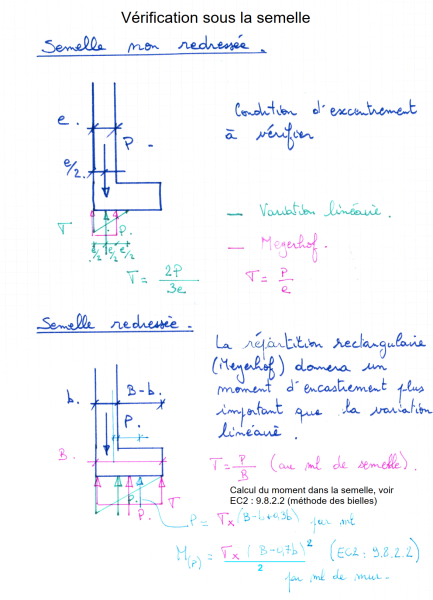 Vérification sous la semelle
Semelle non redressée.
e.
P
Condition d'excentrement
à vérifier
e/2.
— Variation linéaire.
T
P.
— Meyerhof.
e/2 e/2 e/2
T = 2P/3e
T = P/e
Semelle redressée.
La répartition rectangulaire
(Meyerhof) donnera un
moment d'encastrement plus
important que la variation
linéaire.
b.
B-b.
P.
B.
T = P/B (au ml de semelle).
Calcul du moment dans la semelle, voir
EC2 : 9.8.2.2 (méthode des bielles)
P. P.
T
P = T x (B-b+0,3b) par ml
M(P) = T x (B-0,7b)²/2 (EC2: 9.8.2.2)
par ml de mur.